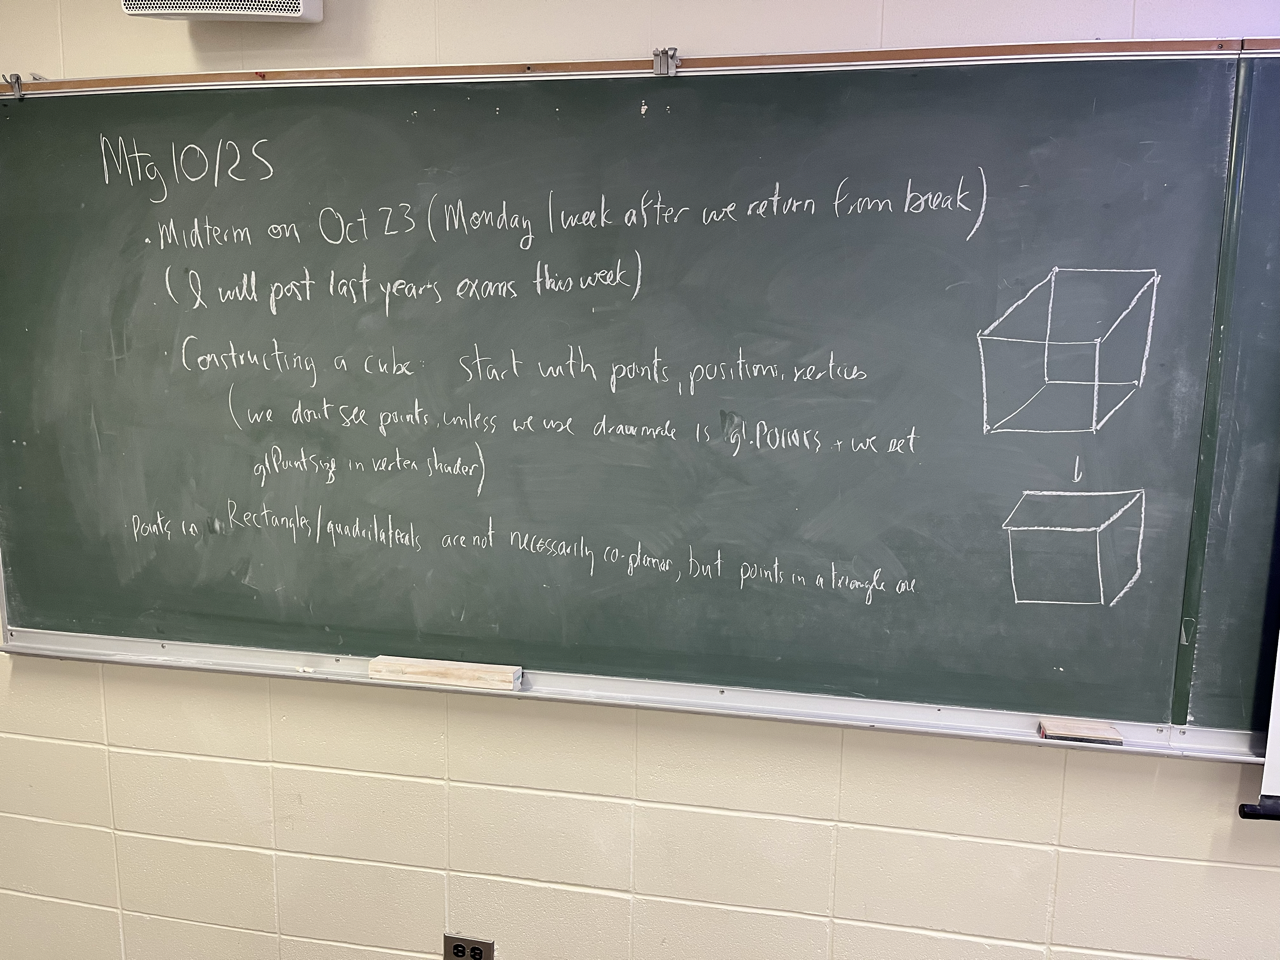 Mtg 10/25
• Midterm on Oct 23 (Monday 1 week after we return from break)
(I will post last years exams this week)
• Constructing a cube: start with points, positions, vertices
(we dont see points, unless we use drawmode is gl.POINTS + we set
glPointSize in vertex shader)
Points in Rectangles/quadrilaterals are not necessarily co-planar, but points in a triangle are